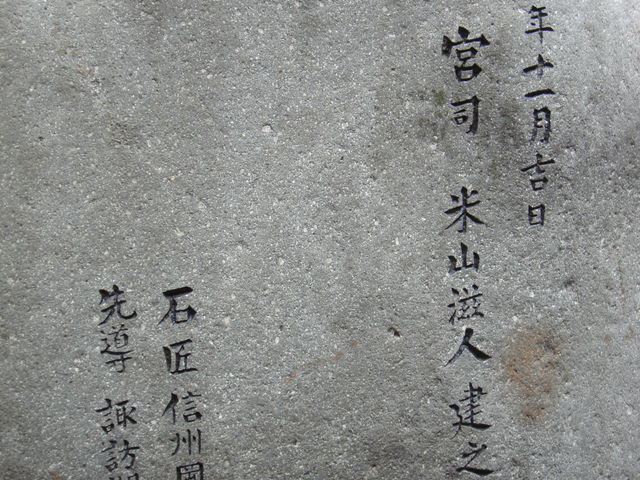 年十一月吉日
宮司 米山滋人 建之
石匠 信州岡
先導 諏訪